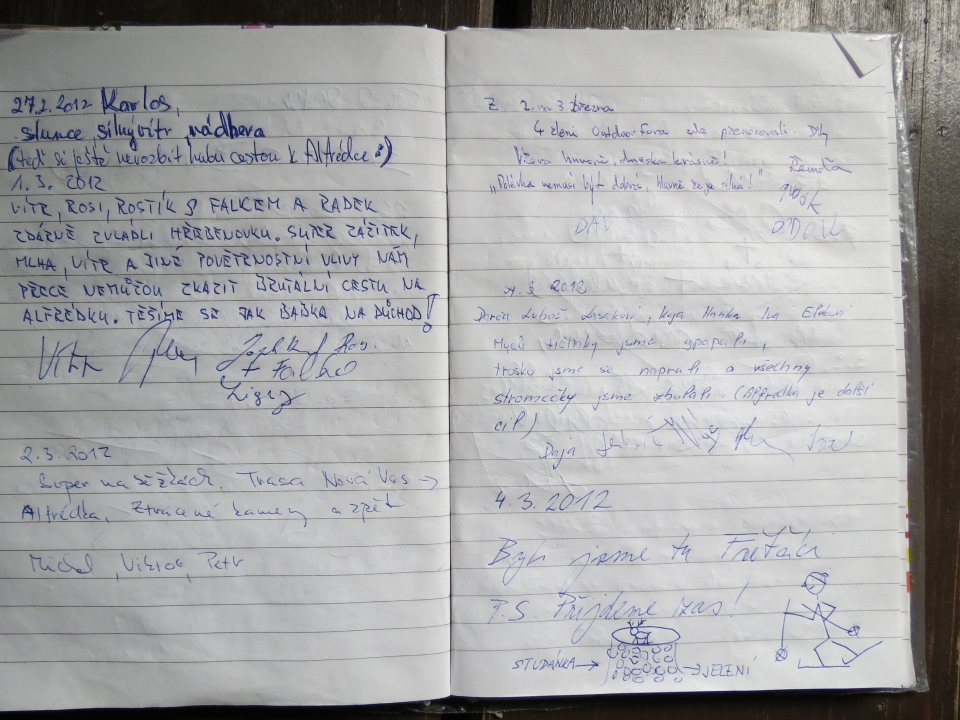 27.2.2012 Karlos,
slunce, silný vítr, nádhera
(teď si ještě nerozbít hubu cestou k Alfrédce :)
1.3. 2012
VÍTR, ROSI, ROSTÍK S FALKEM A RADEK
ZDÁRNĚ ZVLÁDLI HŘEBENOVKU. SUPER ZÁŽITEK,
MLHA, VÍTR A JINÉ POVĚTRNOSTNÍ VLIVY NÁM
PŘECE NEMŮŽOU ZKAZIT BRUTÁLNÍ CESTU NA
ALFRÉDKU. TĚŠÍME SE JAK BABKA NA DŮCHOD!
2.3.2012
Super na běžkách. Trasa Nová Ves →
Alfrédka, Ztracené kameny a zpět
Michal, Viktor, Petr
Z 2. na 3. března
4 členi Outdoor Fóra zde přenocovali. Díky
Včera hnusně, dneska krásně!
"Polévka nemusí být dobrá, hlavně že je silná!"
2012
Luboš
jsme spapali,
trošku jsme se napapali a všechny
stromečky jsme zbulali. (Alfrédka je další
cíl)
4.3.2012
Byli jsme tu
T.S. Přijdeme zas!
STUDÁNKA → → JELENÍ